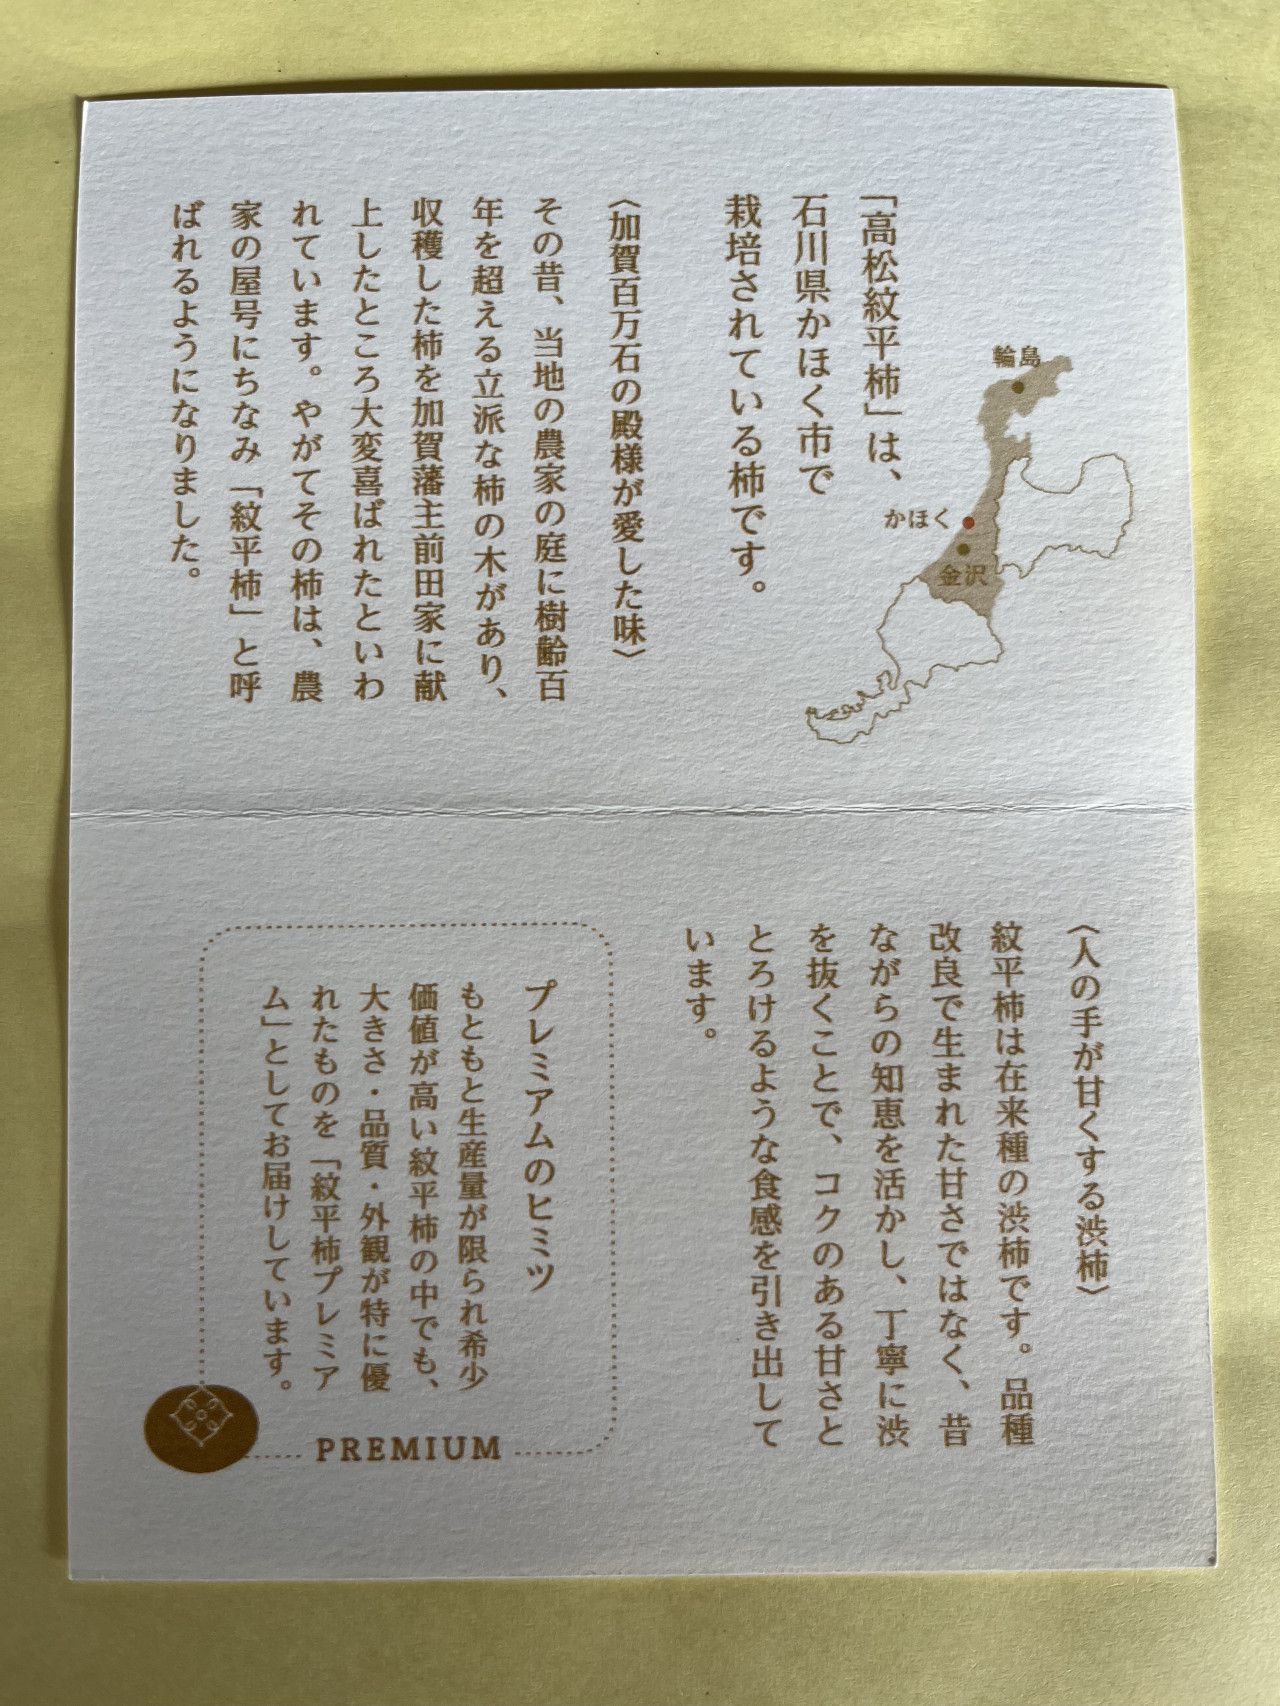 「高松紋平柿」は、
石川県かほく市で
栽培されている柿です。
輪島
かほく
金沢
〈加賀百万石の殿様が愛した味〉
その昔、当地の農家の庭に樹齢百
年を超える立派な柿の木があり、
収穫した柿を加賀藩主前田家に献
上したところ大変喜ばれたといわ
れています。やがてその柿は、農
家の屋号にちなみ「紋平柿」と呼
ばれるようになりました。
〈人の手が甘くする渋柿〉
紋平柿は在来種の渋柿です。品種
改良で生まれた甘さではなく、昔
ながらの知恵を活かし、丁寧に渋
を抜くことで、コクのある甘さと
とろけるような食感を引き出して
います。
プレミアムのヒミツ
もともと生産量が限られ希少
価値が高い紋平柿の中でも、
大きさ・品質・外観が特に優
れたものを「紋平柿プレミア
ム」としてお届けしています。
PREMIUM